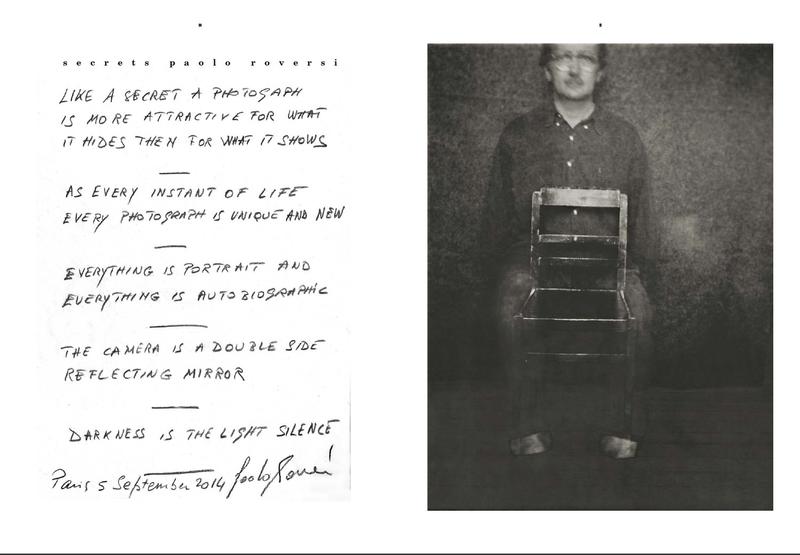 secrets paolo roversi
LIKE A SECRET A PHOTOGAPH
IS MORE ATTRACTIVE FOR WHAT
IT HIDES THEN FOR WHAT IT SHOWS
AS EVERY INSTANT OF LIFE
EVERY PHOTOGRAPH IS UNIQUE AND NEW
EVERYTHING IS PORTRAIT AND
EVERYTHING IS AUTOBIOGRAPHIC
THE CAMERA IS A DOUBLE SIDE
REFLECTING MIRROR
DARKNESS IS THE LIGHT SILENCE
Paris 5 September 2014 Paolo Roversi